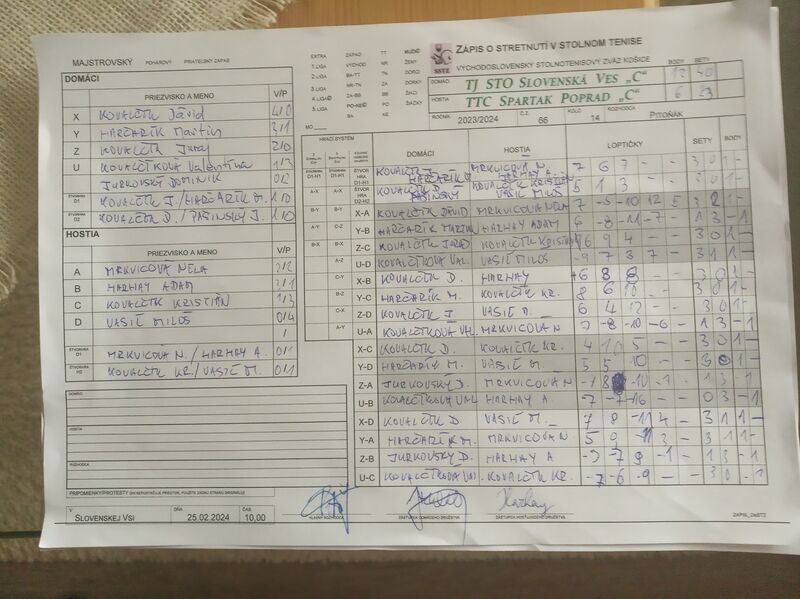 MAJSTROVSKÝ POHÁROVÝ PRIATEĽSKÝ ZÁPAS
DOMÁCI
PRIEZVISKO A MENO V/P
X KOVALČÍK Dávid 4/0
Y HARČARÍK Martin 3/1
Z KOVALČÍK Juraj 2/0
U KOVALČÍKOVÁ Valentína 1/3
JURKOVSKÝ DOMINIK 0/2
ŠTVORHRA D1 KOVALČÍK J./HARČARÍK M. 1/0
ŠTVORHRA D2 KOVALČÍK D./PAŠINSKÝ J. 1/0
HOSTIA
PRIEZVISKO A MENO V/P
A MRKVICOVÁ NELA 2/2
B HARHAY ADAM 2/1
C KOVALČÍK KRISTIÁN 1/3
D VASIĽ MILOŠ 0/4
/
ŠTVORHRA MRKVICOVÁ N./HARHAY A. 0/1
ŠTVORHRA H2 KOVALČÍK KR./VASIĽ M. 0/1
DOMÁCI:
HOSTIA:
ROZHODCA:
PRIPOMIENKY/PROTESTY (AK NEPOSTAČUJE PRIESTOR, POUŽITE ZADNÚ STRANU ORIGINÁLU)
V SLOVENSKEJ VSI DŇA 25.02.2024 ČAS 10,00
HLAVNÝ ROZHODCA
ZÁSTUPCA DOMÁCEHO DRUŽSTVA
ZÁSTUPCA HOSŤUJÚCEHO DRUŽSTVA
ZÁPIS O STRETNUTÍ V STOLNOM TENISE
VÝCHODOSLOVENSKÝ STOLNOTENISOVÝ ZVÄZ KOŠICE
SSTZ
EXTRA ZÁPAD TT MUŽI
1.LIGA VÝCHOD NR ŽENY
2.LIGA BA-TT TN DORCI
3.LIGA NR-TN ZA DORKY
4.LIGA ZA-BB BB ŽIACI
5.LIGA PO-KE KE ŽIAČKY
BA
MO
DOMÁCI TJ STO SLOVENSKÁ VES „C“ BODY 12 SETY 40
HOSTIA TTC SPARTAK POPRAD „C“ 6 23
ROČNÍK 2023/2024 Č.Z. 66 KOLO 14 PITOŇÁK
HRACÍ SYSTÉM DOMÁCI HOSTIA LOPTIČKY SETY BODY
KOVALČÍK J. HARČARÍK M. MRKVICOVÁ N. HARHAY A. 7 6 7 - - 3 0 1 -
KOVALČÍK D. PAŠINSKÝ KOVALČÍK KRISTIÁN VASIĽ MILOŠ 5 1 3 - - 3 0 1 -
X-A KOVALČÍK DÁVID MRKVICOVÁ NELA 7 -5 -10 12 5 3 2 1 -
Y-B HARČARÍK MARTIN HARHAY ADAM 6 -8 -11 -7 - 1 3 - 1
Z-C KOVALČÍK JURAJ KOVALČÍK KRISTIÁN 6 9 4 - - 3 0 1 -
U-D KOVALČÍKOVÁ VAL. VASIĽ MILOŠ -9 7 3 7 - 3 1 1 -
X-B KOVALČÍK D. HARHAY +6 8 6 - - 3 0 1 -
Y-C HARČARÍK M. KOVALČÍK KR. 8 6 10 - - 3 0 1 -
Z-D KOVALČÍK J VASIĽ M. 6 4 12 - - 3 0 1 -
U-A KOVALČÍKOVÁ VAL MRKVICOVÁ N 7 -8 -10 -6 - 1 3 - 1
X-C KOVALČÍK D. KOVALČÍK KR. 4 10 5 - - 3 0 1 -
Y-D HARČARÍK M. VASIĽ M. 5 5 10 - - 3 0 1 -
Z-A JURKOVSKÝ D. MRKVICOVÁ N 1 3 - 1
U-B KOVALČÍKOVÁ VAL HARHAY A. -7 -7 -16 - -
X-D KOVALČÍK D VASIĽ M. 7 8 -11 4 - 3 1 1 -
Y-A HARČARÍK M. MRKVICOVÁ N 5 9 3 - 3 1 1 -
Z-B JURKOVSKÝ D. HARHAY A 1 3 - 1
U-C KOVALČÍKOVÁ VAL KOVALČÍK KR. -7 -6 -9 - -
ZÁPIS_DMSTZ